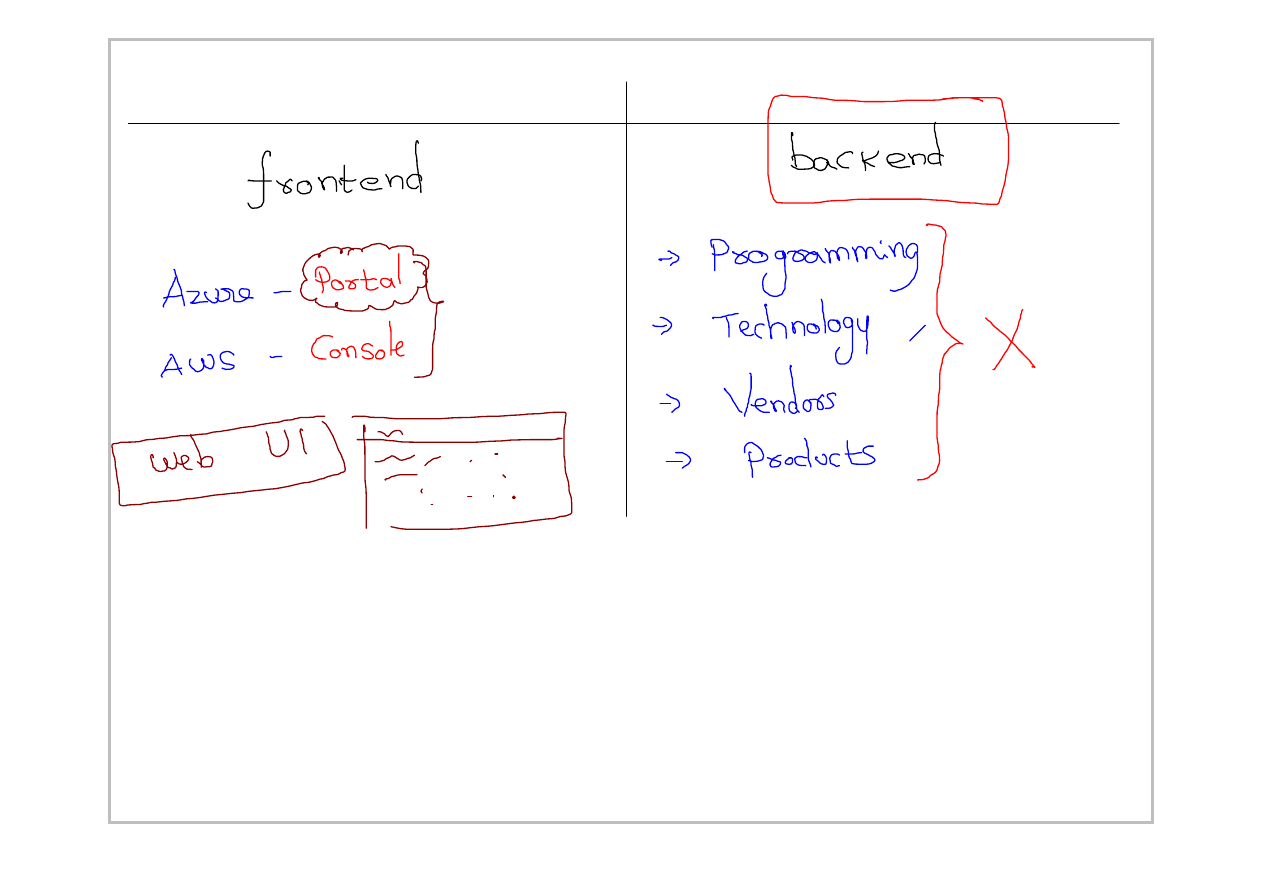 frontend
Azure - Portal
AWS - Console
Web UI
backend
→ Programming
→ Technology
→ Vendors
→ Products
X